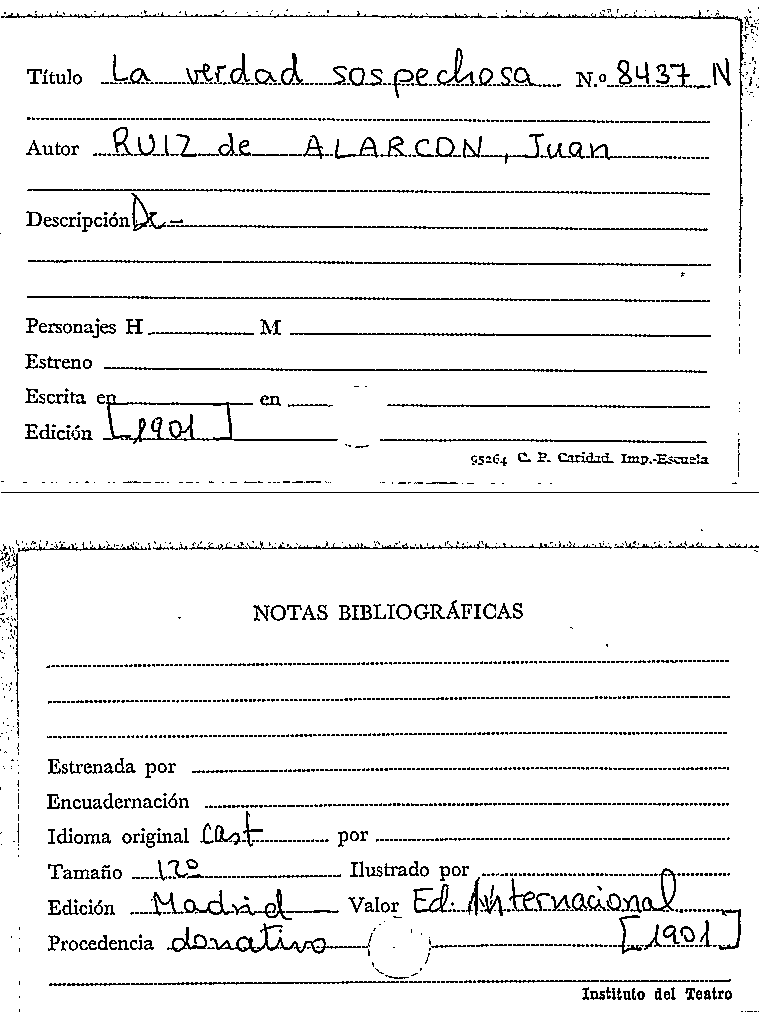 Título La verdad sospechosa N.º 8437 N
Autor RUIZ de ALARCON, Juan
Descripción De -
Personajes H M
Estreno
Escrita en en
Edición [1901]
95264 C. P. Caridad. Imp.-Escuela
NOTAS BIBLIOGRÁFICAS
Estrenada por
Encuadernación
Idioma original Cast por
Tamaño 12º Ilustrado por
Edición Madrid Valor Ed. Internacional
Procedencia donativo [1901]
Instituto del Teatro